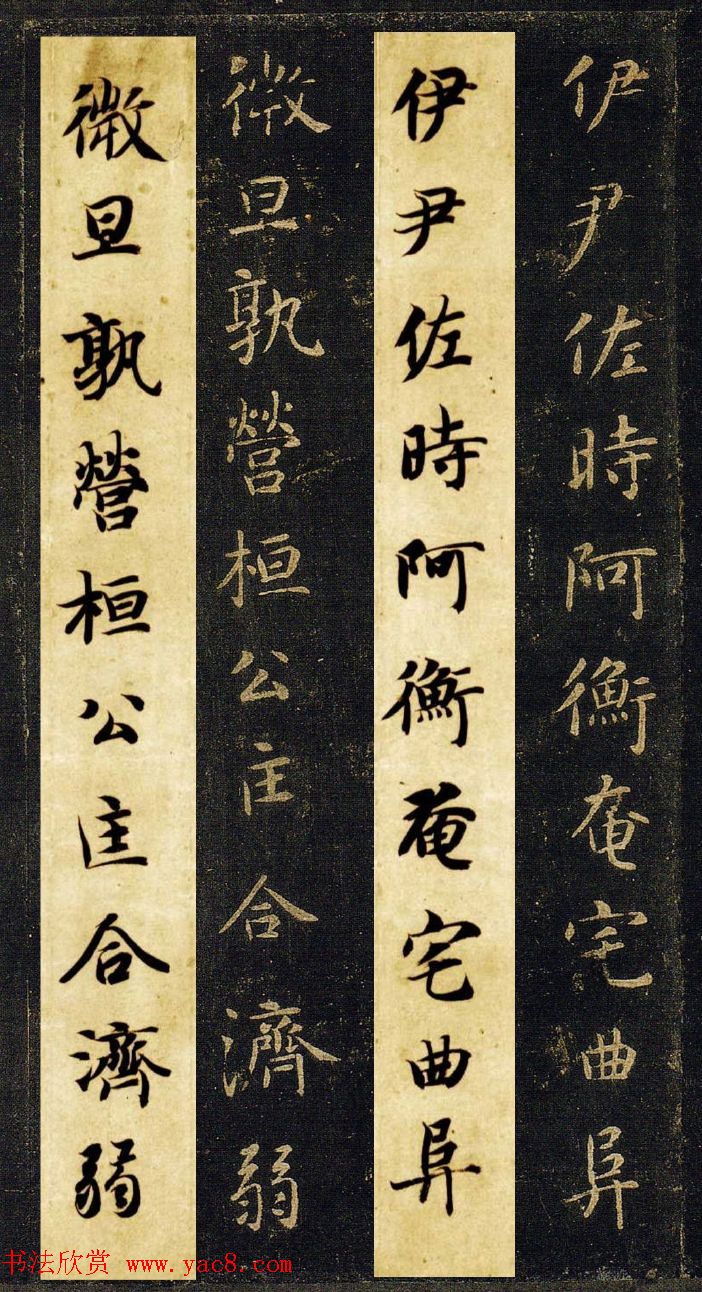 伊尹佐時阿衡奄宅曲阜
伊尹佐時阿衡奄宅曲阜
微旦孰營桓公匡合濟弱
微旦孰營桓公匡合濟弱
书法欣赏 www.yac8.com